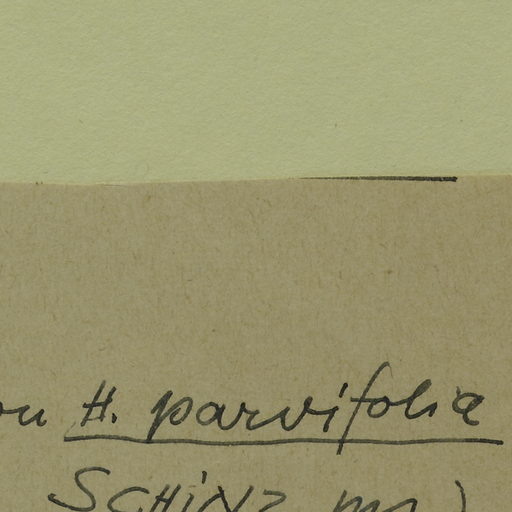 H. parvifolia
SCHINZ